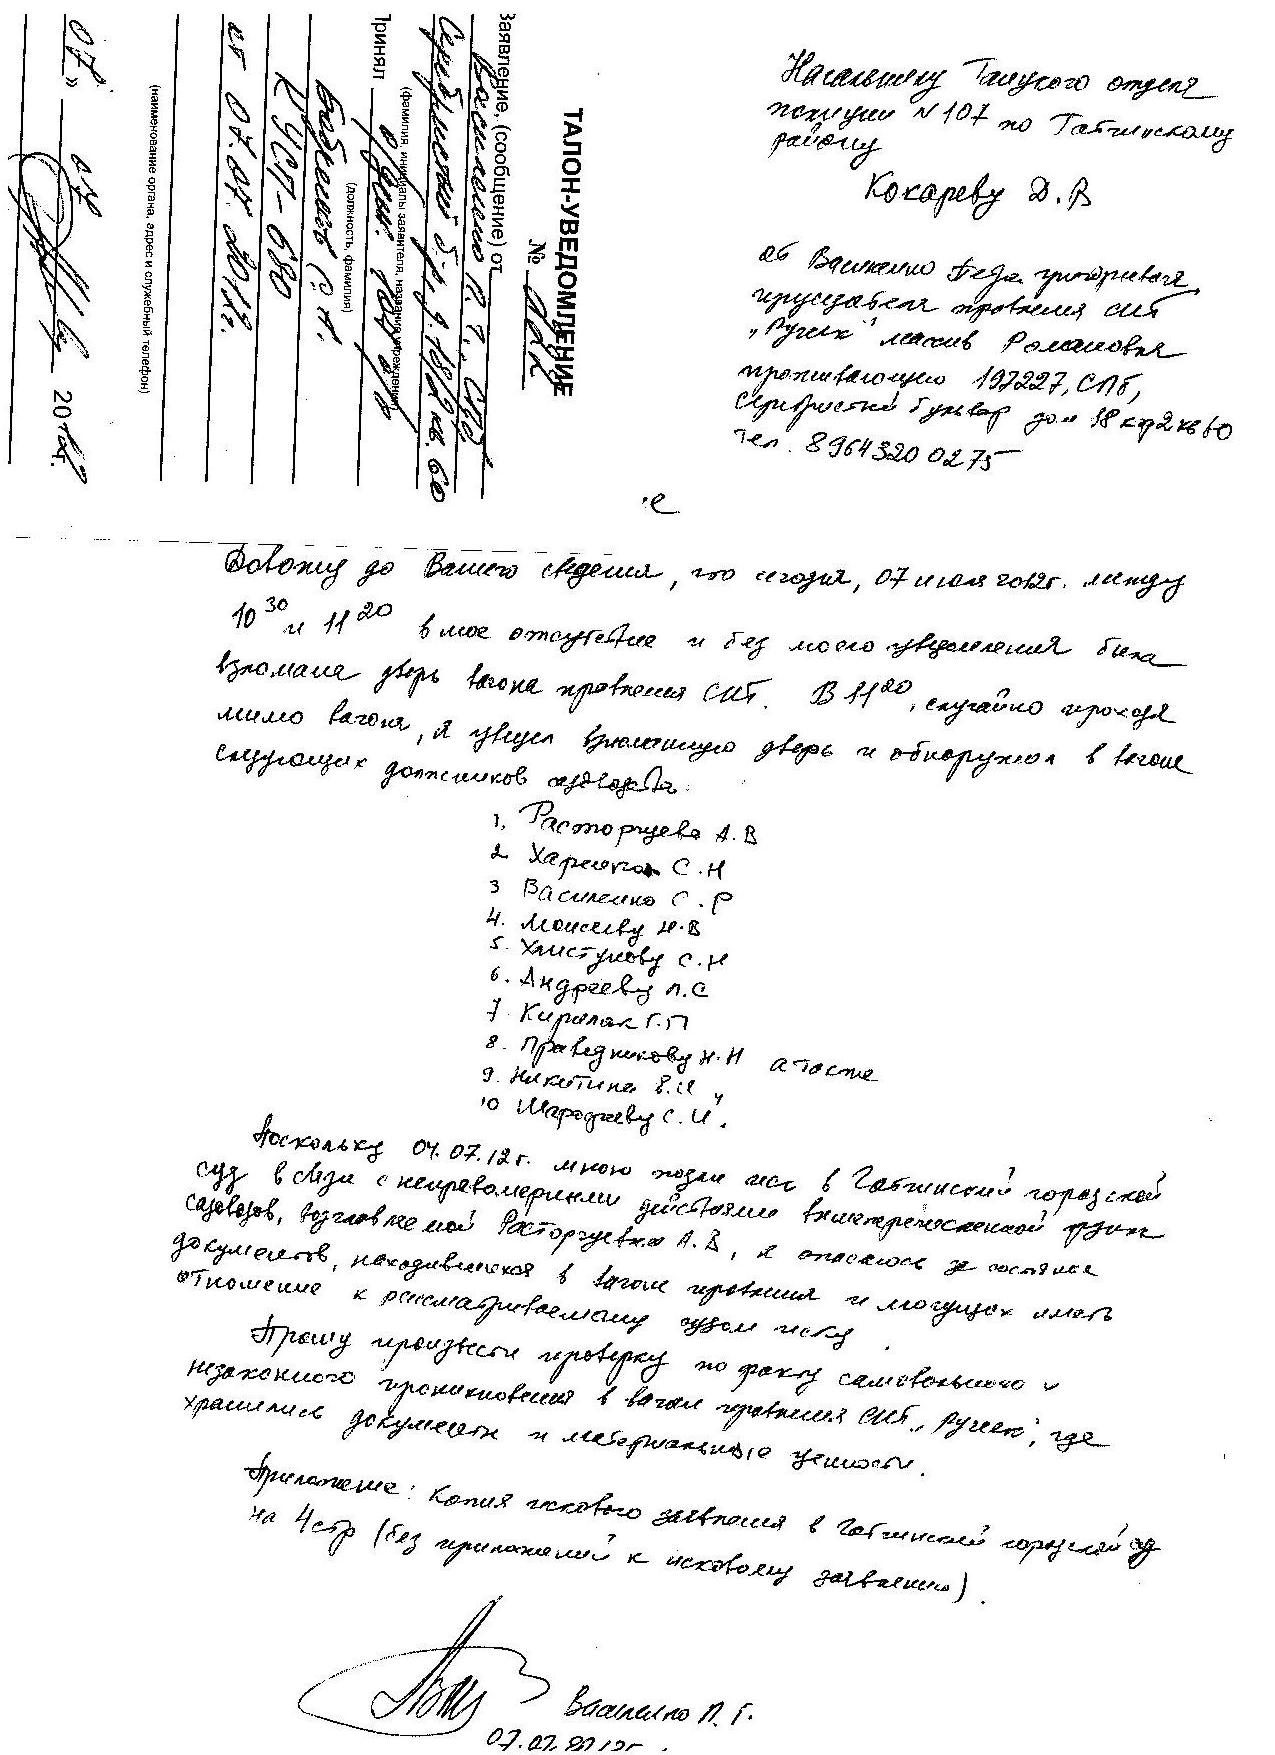 ТАЛОН-УВЕДОМЛЕНИЕ
№
Заявление, (сообщение) от
Василенко П. Г., СПб
Серебристый б-р, д. 18/2 кв. 60
(фамилия, инициалы заявителя, название учреждения)
Принял
(должность, фамилия)
КУСП-680
от 07.07.2012г.
(наименование органа, адрес и служебный телефон)
07» 07 2012г.
Начальнику Таицкого отдела
полиции N 107 по Гатчинскому
району
Кокареву Д. В
от Василенко Петра Григорьевича
председателя правления СНТ
„Ручеек" массив Романовка
проживающего 197227, СПб,
Серебристый бульвар дом 18 кор2 кв 60
тел. 8964 320 0275
е
Довожу до Вашего сведения, что сегодня, 07 июля 2012г. между
10 30 и 11 20 в мое отсутствие и без моего уведомления была
взломана дверь вагона правления СНТ. В 11 20, случайно проходя
мимо вагона, я увидел взломанную дверь и обнаружил в вагоне
следующих должников садоводства
1. Расторгуева А. В
2 С. Н
3 Василенко С. Р
4. Моисееву Н. В
5. Хлистунову С. Н
6. Андрееву Л. С
7 Кирилак Г. П
8. Праведникову Н. Н а также
9. Никитина В. И
10 С. И".
Поскольку 04.07.12г. мною подан иск в Гатчинский городской
суд в связи с неправомерными действиями вышеперечисленной группы
садоводов, возглавляемой Расторгуевым А. В, я опасаюсь за состояние
документов, находившихся в вагоне правления и могущих иметь
отношение к рассматриваемому судом иску.
Прошу произвести проверку по факту самовольного и
незаконного проникновения в вагон правления СНТ „Ручеек", где
хранились документы и материальные ценности.
Приложение: Копия искового заявления в Гатчинский городской суд
на 4 стр (без приложений к исковому заявлению).
Василенко П. Г.
07.07.2012г.